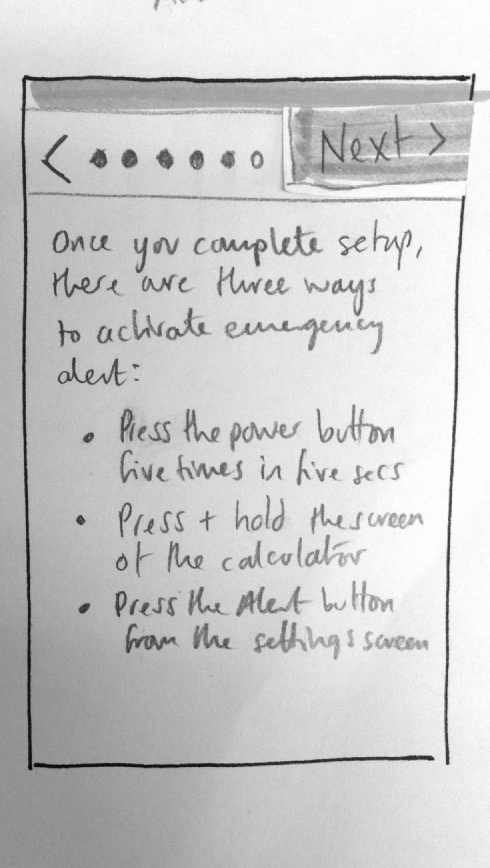 Next >
Once you complete setup,
there are three ways
to activate emergency
alert:
• Press the power button
five times in five secs
• Press + hold the screen
of the calculator
• Press the Alert button
from the settings screen